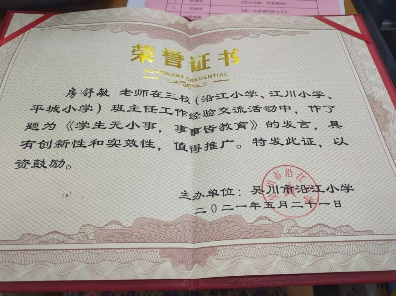 荣誉证书
房舒敏 老师在三校（沿江小学、江川小学、
平城小学）班主任工作经验交流活动中，作了
题为《学生无小事，事事皆教育》的发言，具
有创新性和实效性，值得推广。特发此证，以
资鼓励。
主办单位：吴川市沿江小学
二〇二一年五月二十一日